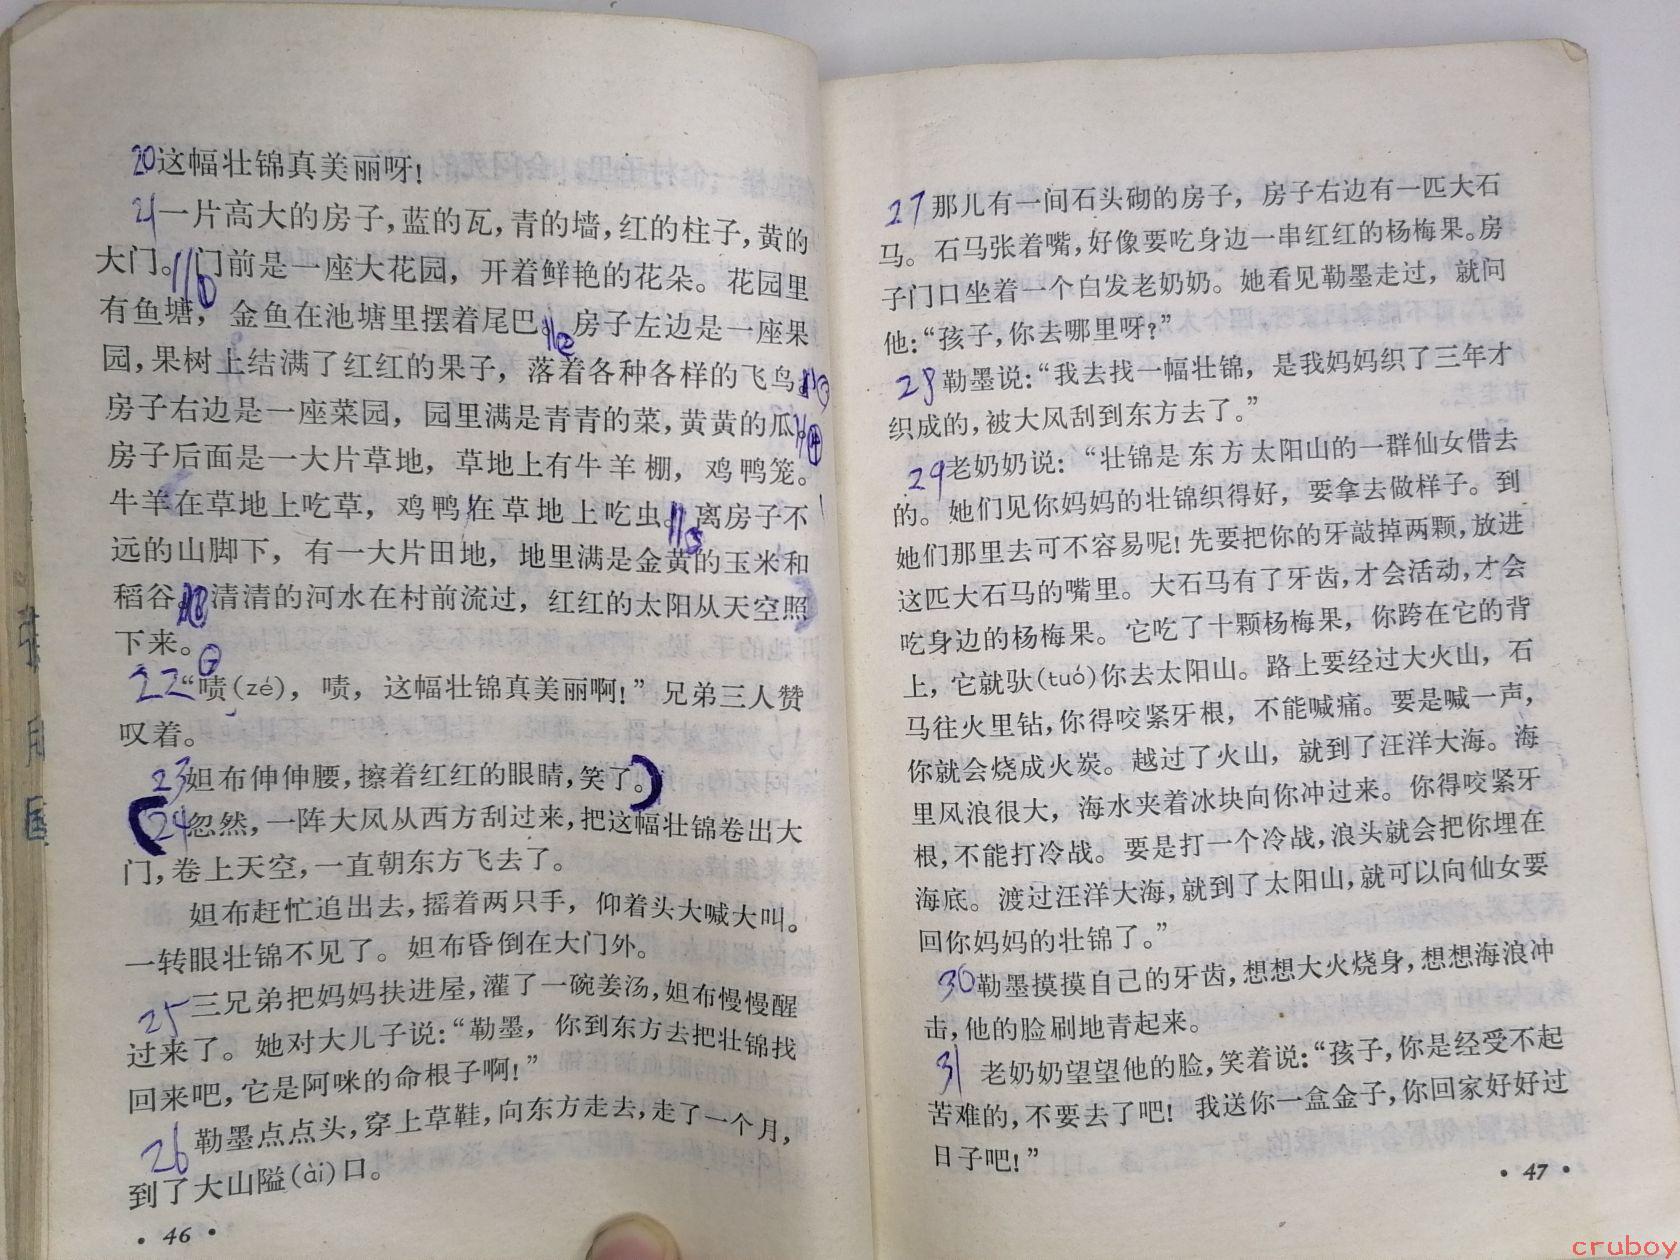 20这幅壮锦真美丽呀!
21一片高大的房子,蓝的瓦,青的墙,红的柱子,黄的
大门。门前是一座大花园,开着鲜艳的花朵。花园里
有鱼塘,金鱼在池塘里摆着尾巴。房子左边是一座果
园,果树上结满了红红的果子,落着各种各样的飞鸟。
房子右边是一座菜园,园里满是青青的菜,黄黄的瓜。
房子后面是一大片草地,草地上有牛羊棚,鸡鸭笼。
牛羊在草地上吃草,鸡鸭在草地上吃虫。离房子不
远的山脚下,有一大片田地,地里满是金黄的玉米和
稻谷。清清的河水在村前流过,红红的太阳从天空照
下来。
22“啧(zé),啧,这幅壮锦真美丽啊!”兄弟三人赞
叹着。
23妲布伸伸腰,擦着红红的眼睛,笑了。
24忽然,一阵大风从西方刮过来,把这幅壮锦卷出大
门,卷上天空,一直朝东方飞去了。
妲布赶忙追出去,摇着两只手,仰着头大喊大叫。
一转眼壮锦不见了。妲布昏倒在大门外。
25三兄弟把妈妈扶进屋,灌了一碗姜汤,妲布慢慢醒
过来了。她对大儿子说:“勒墨,你到东方去把壮锦找
回来吧,它是阿咪的命根子啊!”
26勒墨点点头,穿上草鞋,向东方走去,走了一个月,
到了大山隘(ài)口。
• 46 •
27那儿有一间石头砌的房子,房子右边有一匹大石
马。石马张着嘴,好像要吃身边一串红红的杨梅果。房
子门口坐着一个白发老奶奶。她看见勒墨走过,就问
他:“孩子,你去哪里呀?”
28勒墨说:“我去找一幅壮锦,是我妈妈织了三年才
织成的,被大风刮到东方去了。”
29老奶奶说:“壮锦是东方太阳山的一群仙女借去
的。她们见你妈妈的壮锦织得好,要拿去做样子。到
她们那里去可不容易呢!先要把你的牙敲掉两颗,放进
这匹大石马的嘴里。大石马有了牙齿,才会活动,才会
吃身边的杨梅果。它吃了十颗杨梅果,你跨在它的背
上,它就驮(tuó)你去太阳山。路上要经过大火山,石
马往火里钻,你得咬紧牙根,不能喊痛。要是喊一声,
你就会烧成火炭。越过了火山,就到了汪洋大海。海
里风浪很大,海水夹着冰块向你冲过来。你得咬紧牙
根,不能打冷战。要是打一个冷战,浪头就会把你埋在
海底。渡过汪洋大海,就到了太阳山,就可以向仙女要
回你妈妈的壮锦了。”
30勒墨摸摸自己的牙齿,想想大火烧身,想想海浪冲
击,他的脸刷地青起来。
31老奶奶望望他的脸,笑着说:“孩子,你是经受不起
苦难的,不要去了吧!我送你一盒金子,你回家好好过
日子吧!”
• 47 •
cruboy